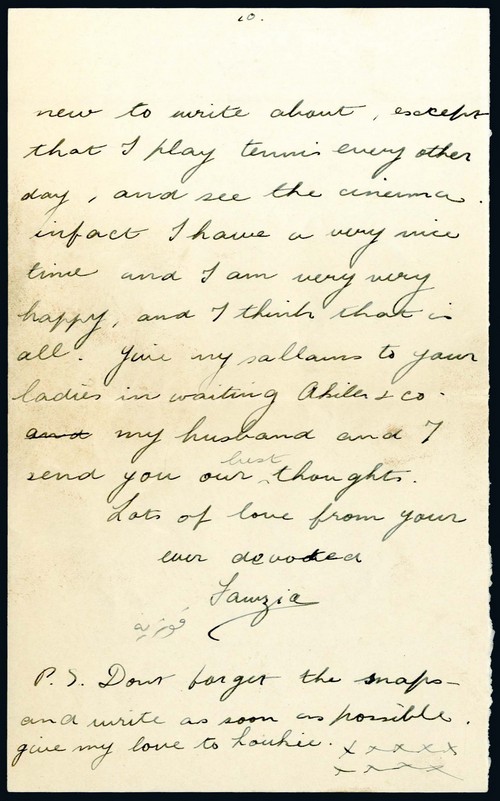 10.
new to write about, except
that I play tennis every other
day, and see the cinema.
infact I have a very nice
time and I am very very
happy, and I think that is
all. Give my sallams to your
ladies in waiting & co.
and my husband and I
send you our best thoughts.
Lots of love from your
ever devoted
Fawzia
فوزية
P.S. Dont forget the snaps-
and write as soon as possible.
give my love to xxxxx
xxxxx